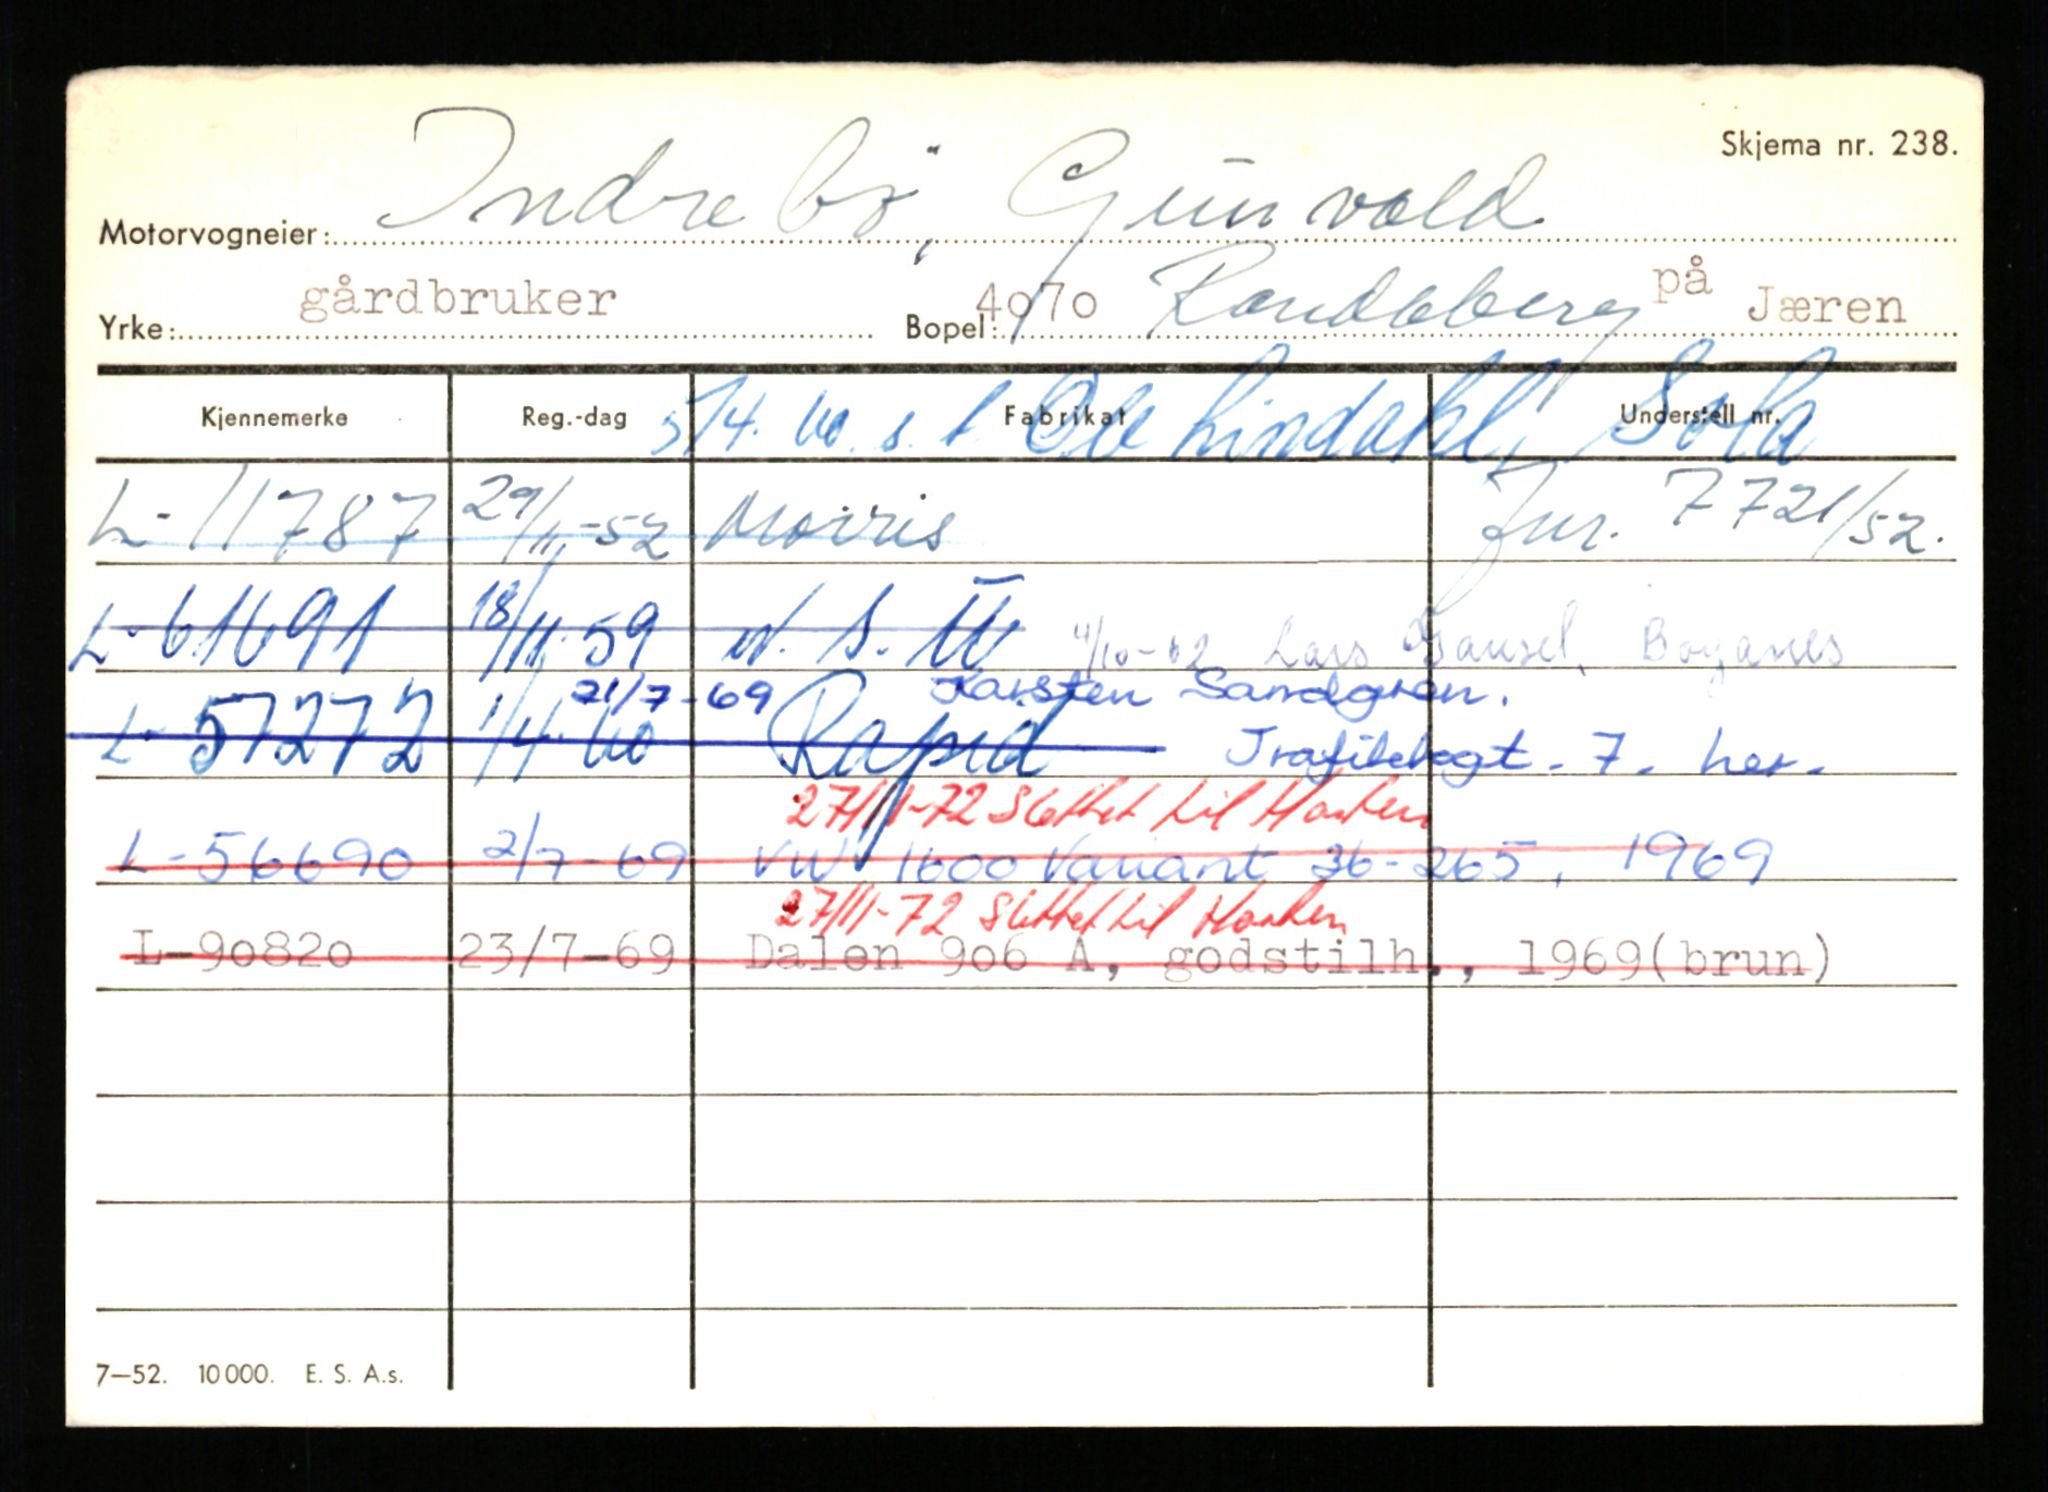 Skjema nr. 238.
Motorvogneier: Indrebø, Gunvald
Yrke: gårdbruker Bopel: 4070 Randaberg på Jæren
Kjennemerke Reg.-dag Fabrikat Understell nr.
5/4. 60. s. t. Ole Lindahl, Sola
L-11787 29/11-52 Morris Jnr. 7721/52.
L-61691 18/11. 59 N. S. U. 4/10-62 Lars Gausel, Boganes
21/7-69 Karsten Sandgren.
L-57272 1/4. 60 Rapid Trafikkvogt. 7. her.
27/11-72 Slettet til Hasken
L-56690 2/7-69 VW 1600 Variant 36-265, 1969
27/11-72 Slettet til
L-90820 23/7-69 Dalen 906 A, godstilh., 1969(brun)
7-52. 10000. E. S. A.s.